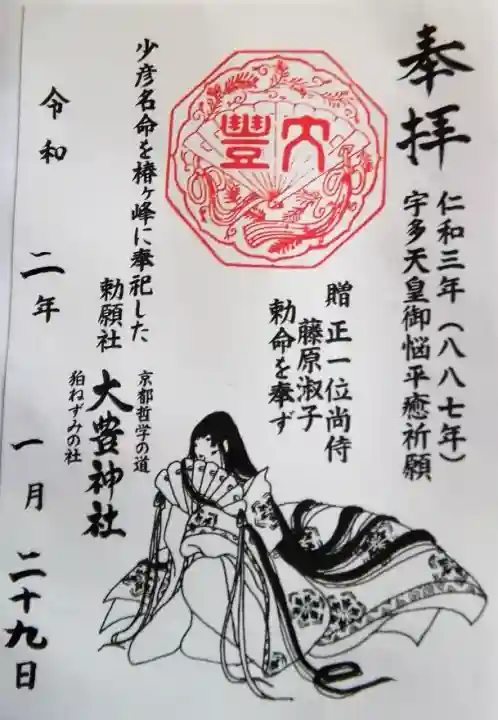 奉拝
仁和三年(八八七年)
宇多天皇御悩平癒祈願
大豐
贈正一位尚侍
藤原淑子
勅命を奉ず
少彦名命を椿ヶ峰に奉祀した
勅願社
京都哲学の道
大豊神社
狛ねずみの社
令和二年一月二十九日